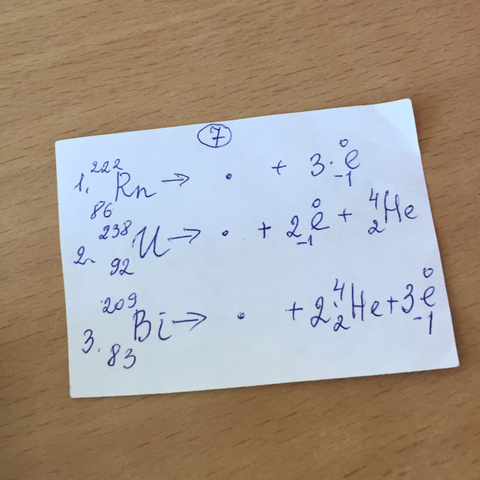 7
1. ²²²₈₆Rn → . + 3·⁰₋₁e
2. ²³⁸₉₂U → . + 2⁰₋₁e + ⁴₂He
3. ²⁰⁹₈₃Bi → . + 2⁴₂He + 3⁰₋₁e